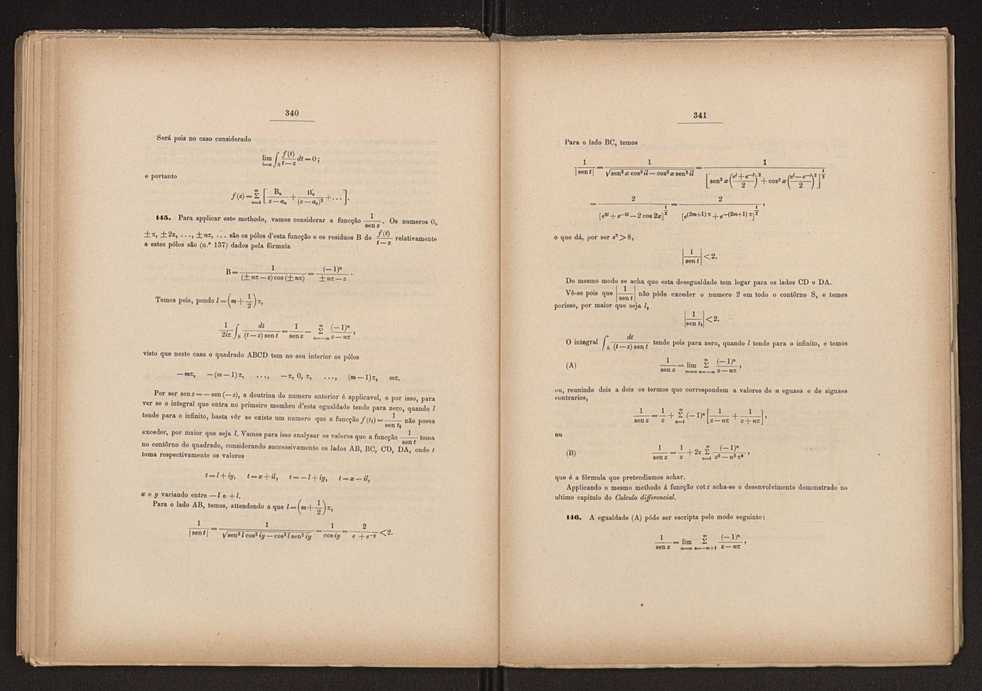 340
Será pois no caso considerado
lim_{l=∞} ∫_S f(t)/(t—z) dt = 0;
e portanto
f(z) = Σ_{n=1}^{∞} [ B_n/(z—a_n) + B'_n/(z—a_n)² + . . . ].
145. Para applicar este methodo, vamos considerar a funcção 1/(sen z). Os numeros 0,
±π, ±2π, . . ., ±nπ, . . . são os pólos d'esta funcção e os residuos B de f(t)/(t—z) relativamente
a estes pólos são (n.º 137) dados pela fórmula
B = 1/((±nπ—z) cos (±nπ)) = (—1)ⁿ/(±nπ—z) .
Temos pois, pondo l = (m + 1/2) π,
1/(2iπ) ∫_S dt/((t—z) sen t) = 1/(sen z) — Σ_{n=—m}^{m} (—1)ⁿ/(z—nπ),
visto que neste caso o quadrado ABCD tem no seu interior os pólos
—mπ, —(m—1)π, . . ., —π, 0, π, . . ., (m—1)π, mπ.
Por ser sen z = — sen (—z), a doutrina do numero anterior é applicavel, e por isso, para
ver se o integral que entra no primeiro membro d'esta egualdade tende para zero, quando l
tende para o infinito, basta vêr se existe um numero que a funcção f(t₁) = 1/(sen t₁) não possa
exceder, por maior que seja l. Vamos para isso analysar os valores que a funcção 1/(sen t) toma
no contôrno do quadrado, considerando successivamente os lados AB, BC, CD, DA, onde t
toma respectivamente os valores
t = l + iy, t = x + il, t = — l + iy, t = x — il,
x e y variando entre — l e + l.
Para o lado AB, temos, attendendo a que l = (m + 1/2) π,
1/|sen t| = 1/√(sen² l cos² iy — cos² l sen² iy) = 1/(cos iy) = 2/(e + e^{—y}) < 2.
341
Para o lado BC, temos
1/|sen t| = 1/√(sen² x cos² il — cos² x sen² il) = 1/[sen² x ((e^l + e^{—l})/2)² + cos² x ((e^l — e^{—l})/2)²]^{1/2}
= 2/[e^{2l} + e^{—2l} — 2 cos 2x]^{1/2} = 2/[e^{(2m+1)π} + e^{—(2m+1)π}]^{1/2} ,
o que dá, por ser e^π > 8,
|1/(sen t)| < 2.
Do mesmo modo se acha que esta desegualdade tem logar para os lados CD e DA.
Vê-se pois que |1/(sen t)| não póde exceder o numero 2 em todo o contôrno S, e temos
porisso, por maior que seja l,
|1/(sen t₁)| < 2.
O integral ∫_S dt/((t—z) sen t) tende pois para zero, quando l tende para o infinito, e temos
(A) 1/(sen z) = lim_{m=∞} Σ_{n=—m}^{m} (—1)ⁿ/(z—nπ),
ou, reunindo dois a dois os termos que correspondem a valores de n eguaes e de signaes
contrarios,
1/(sen z) = 1/z + Σ_{n=1}^{∞} (—1)ⁿ [1/(z—nπ) + 1/(z+nπ)],
ou
(B) 1/(sen z) = 1/z + 2z Σ_{n=1}^{∞} (—1)ⁿ/(z²—n²π²) ,
que é a fórmula que pretendiamos achar.
Applicando o mesmo methodo á funcção cot z acha-se o desenvolvimento demonstrado no
ultimo capitulo do Calculo differencial.
146. A egualdade (A) póde ser escripta pelo modo seguinte:
1/(sen z) = lim_{m=∞} Σ_{n=—m+1}^{m} (—1)ⁿ/(z—nπ),